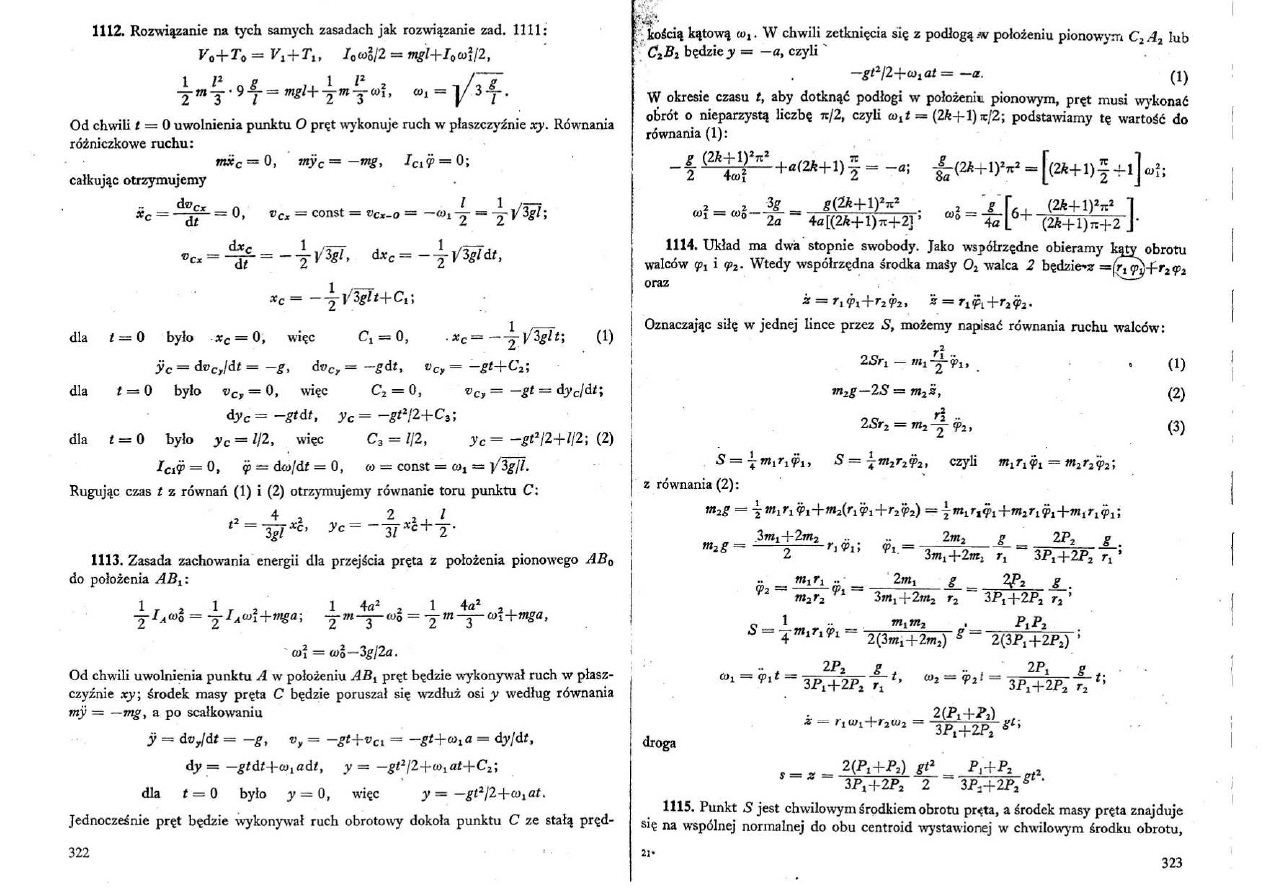 1112. Rozwiązanie na tych samych zasadach jak rozwiązanie zad. 1111:
V₀+T₀ = V₁+T₁, I₀ω₀²/2 = mgl+I₀ω₁²/2,
1/2 m l²/3 · 9 g/l = mgl+ 1/2 m l²/3 ω₁², ω₁ = √(3 g/l).
Od chwili t = 0 uwolnienia punktu O pręt wykonuje ruch w płaszczyźnie xy. Równania
różniczkowe ruchu:
mẍ_C = 0, mÿ_C = —mg, I_C₁φ̈ = 0;
całkując otrzymujemy
ẍ_C = dv_Cx/dt = 0, v_Cx = const = v_Cx₋₀ = —ω₁ l/2 = 1/2 √(3gl);
v_Cx = dx_C/dt = — 1/2 √(3gl), dx_C = — 1/2 √(3gl) dt,
x_C = — 1/2 √(3gl) t+C₁;
dla t = 0 było x_C = 0, więc C₁ = 0, x_C = — 1/2 √(3gl) t; (1)
ÿ_C = dv_Cy/dt = —g, dv_Cy = —gdt, v_Cy = —gt+C₂;
dla t = 0 było v_Cy = 0, więc C₂ = 0, v_Cy = —gt = dy_C/dt;
dy_C = —gtdt, y_C = —gt²/2+C₃;
dla t = 0 było y_C = l/2, więc C₃ = l/2, y_C = —gt²/2+l/2; (2)
I_C₁φ̈ = 0, φ̈ = dω/dt = 0, ω = const = ω₁ = √(3g/l).
Rugując czas t z równań (1) i (2) otrzymujemy równanie toru punktu C:
t² = 4/(3gl) x_C², y_C = — 2/(3l) x_C² + l/2.
1113. Zasada zachowania energii dla przejścia pręta z położenia pionowego AB₀
do położenia AB₁:
1/2 I_Aω₀² = 1/2 I_Aω₁²+mga; 1/2 m 4a²/3 ω₀² = 1/2 m 4a²/3 ω₁²+mga,
ω₁² = ω₀²—3g/2a.
Od chwili uwolnienia punktu A w położeniu AB₁ pręt będzie wykonywał ruch w płasz-
czyźnie xy; środek masy pręta C będzie poruszał się wzdłuż osi y według równania
mÿ = —mg, a po scałkowaniu
ÿ = dv_y/dt = —g, v_y = —gt+v_C₁ = —gt+ω₁a = dy/dt,
dy = —gtdt+ω₁adt, y = —gt²/2+ω₁at+C₂;
dla t = 0 było y = 0, więc y = —gt²/2+ω₁at.
Jednocześnie pręt będzie wykonywał ruch obrotowy dokoła punktu C ze stałą pręd-
322
kością kątową ω₁. W chwili zetknięcia się z podłogą w położeniu pionowym C₂A₂ lub
C₂B₂ będzie y = —a, czyli
—gt²/2+ω₁at = —a. (1)
W okresie czasu t, aby dotknąć podłogi w położeniu pionowym, pręt musi wykonać
obrót o nieparzystą liczbę π/2, czyli ω₁t = (2k+1)π/2; podstawiamy tę wartość do
równania (1):
— g/2 (2k+1)²π²/(4ω₁²) + a(2k+1) π/2 = —a; g/(8a) (2k+1)²π² = [(2k+1) π/2 +1] ω₁²;
ω₁² = ω₀² — 3g/2a = g(2k+1)²π²/(4a[(2k+1)π+2]); ω₀² = g/4a [6+ (2k+1)²π²/((2k+1)π+2)].
1114. Układ ma dwa stopnie swobody. Jako współrzędne obieramy kąty obrotu
walców φ₁ i φ₂. Wtedy współrzędna środka masy O₂ walca 2 będzie z = r₁φ₁+r₂φ₂
oraz
ż = r₁φ̇₁+r₂φ̇₂, z̈ = r₁φ̈₁+r₂φ̈₂.
Oznaczając siłę w jednej lince przez S, możemy napisać równania ruchu walców:
2Sr₁ — m₁ r₁²/2 φ̈₁, (1)
m₂g—2S = m₂z̈, (2)
2Sr₂ = m₂ r₂²/2 φ̈₂, (3)
S = 1/4 m₁r₁φ̈₁, S = 1/4 m₂r₂φ̈₂, czyli m₁r₁φ̈₁ = m₂r₂φ̈₂;
z równania (2):
m₂g = 1/2 m₁r₁φ̈₁+m₂(r₁φ̈₁+r₂φ̈₂) = 1/2 m₁r₁φ̈₁+m₂r₁φ̈₁+m₁r₁φ̈₁;
m₂g = (3m₁+2m₂)/2 r₁φ̈₁; φ̈₁ = 2m₂/(3m₁+2m₂) g/r₁ = 2P₂/(3P₁+2P₂) g/r₁;
φ̈₂ = m₁r₁/(m₂r₂) φ̈₁ = 2m₁/(3m₁+2m₂) g/r₂ = 2P₂/(3P₁+2P₂) g/r₂;
S = 1/4 m₁r₁φ̈₁ = m₁m₂/(2(3m₁+2m₂)) g = P₁P₂/(2(3P₁+2P₂));
ω₁ = φ̈₁t = 2P₂/(3P₁+2P₂) g/r₁ t, ω₂ = φ̈₂t = 2P₁/(3P₁+2P₂) g/r₂ t;
ż = r₁ω₁+r₂ω₂ = 2(P₁+P₂)/(3P₁+2P₂) gt;
droga
s = z = 2(P₁+P₂)/(3P₁+2P₂) gt²/2 = (P₁+P₂)/(3P₁+2P₂) gt².
1115. Punkt S jest chwilowym środkiem obrotu pręta, a środek masy pręta znajduje
się na wspólnej normalnej do obu centroid wystawionej w chwilowym środku obrotu,
21*
323